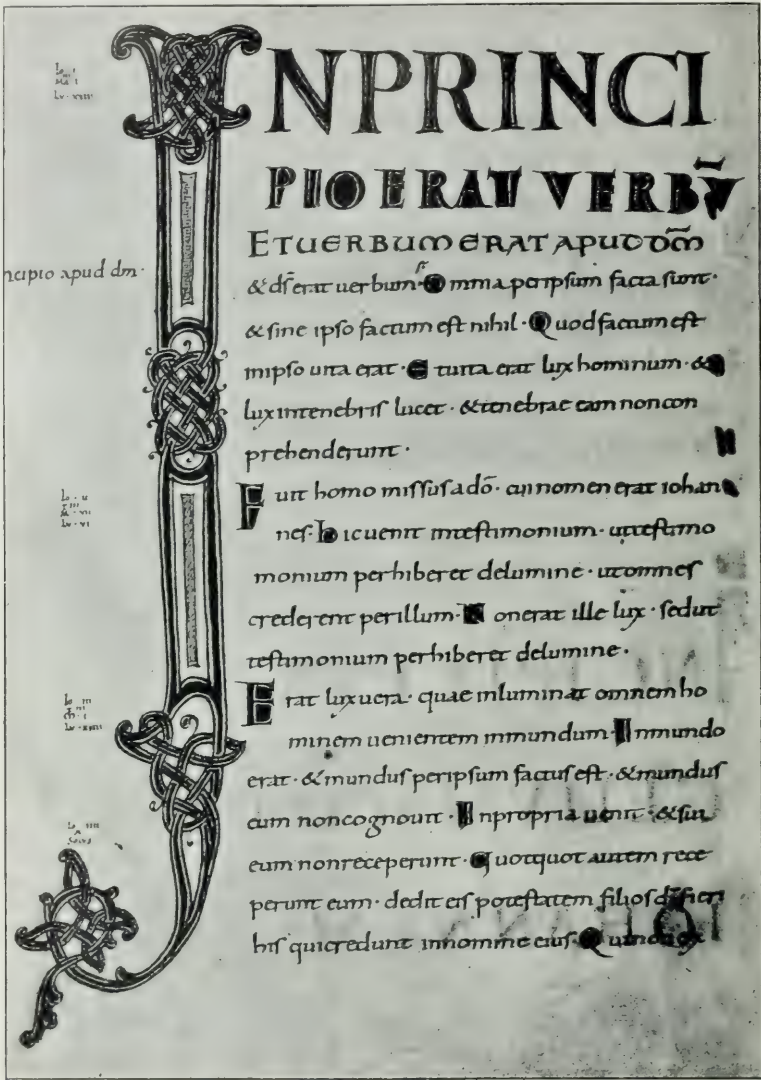 INPRINCI
PIO ERAT VERBŪ
ETUERBUM ERAT APUD DŌM
& dſ erat uerbum · Omnia per ipſum facta ſunt ·
& ſine ipſo factum eſt nihil · Quod factum eſt
in ipſo uita erat · Et uita erat lux hominum · &
lux in tenebriſ lucet · & tenebrae eam non con
prehenderunt ·
Fuit homo miſſuſ a dō · cui nomen erat iohan
neſ · hic uenit in teſtimonium · ut teſtimo
monium perhiberet de lumine · ut omneſ
crederent per illum · Non erat ille lux · ſed ut
teſtimonium perhiberet de lumine ·
Erat lux uera · quae inluminat omnem ho
minem uenientem in mundum · In mundo
erat · & munduſ per ipſum factuſ eſt · & munduſ
eum non cognouit · In propria uenit · & ſui
eum non receperunt · Quotquot autem rece
perunt eum · dedit eiſ poteſtatem filioſ dī fieri
hiſ qui credunt in nomine eiuſ · Qui non ex
ncipio apud dm ·